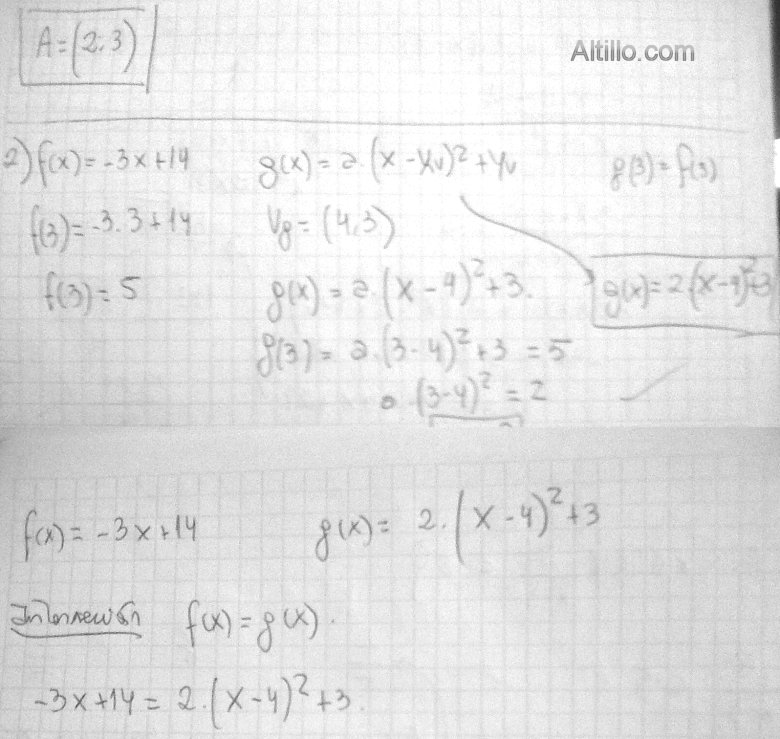 A = (2; 3)
Altillo.com
2) f(x) = -3x + 14 g(x) = a. (x - xv)² + yv g(3) = f(3)
f(3) = -3. 3 + 14 Vg = (4, 3)
f(3) = 5 g(x) = a. (x - 4)² + 3. g(x) = 2. (x - 4)² + 3
g(3) = a. (3 - 4)² + 3 = 5
a. (3 - 4)² = 2
f(x) = -3x + 14 g(x) = 2. (x - 4)² + 3
f(x) = g(x).
-3x + 14 = 2. (x - 4)² + 3.